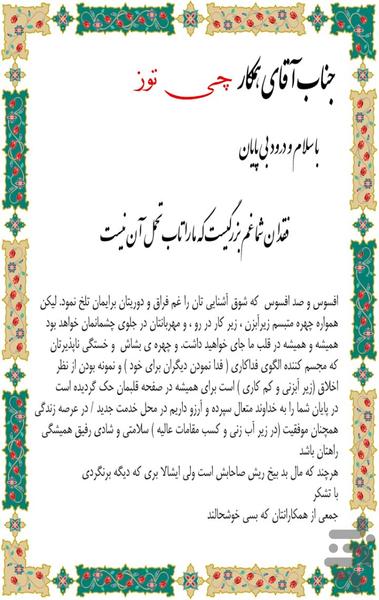 جناب آقای همکار چی توز
با سلام و درود بی پایان
فقدان شما غم بزرگیست که ما را تاب تحمل آن نیست
افسوس و صد افسوس که شوق آشنایی تان را غم فراق و دوریتان برایمان تلخ نمود. لیکن
همواره چهره متبسم زیرآبزن ، زیر کار در رو ، و مهربانتان در جلوی چشمانمان خواهد بود
همیشه و همیشه در قلب ما جای خواهید داشت. و چهره ی بشاش و خستگی ناپذیرتان
که مجسم کننده الگوی فداکاری ( فدا نمودن دیگران برای خود ) و نمونه بودن از نظر
اخلاق (زیر آبزنی و کم کاری ) است برای همیشه در صفحه قلبمان حک گردیده است
در پایان شما را به خداوند متعال سپرده و آرزو داریم در محل خدمت جدید / در عرصه زندگی
همچنان موفقیت (در زیر آب زنی و کسب مقامات عالیه ) سلامتی و شادی رفیق همیشگی
راهتان باشد
هرچند که مال بد بیخ ریش صاحابش است ولی ایشالا بری که دیگه برنگردی
با تشکر
جمعی از همکارانتان که بسی خوشحالند